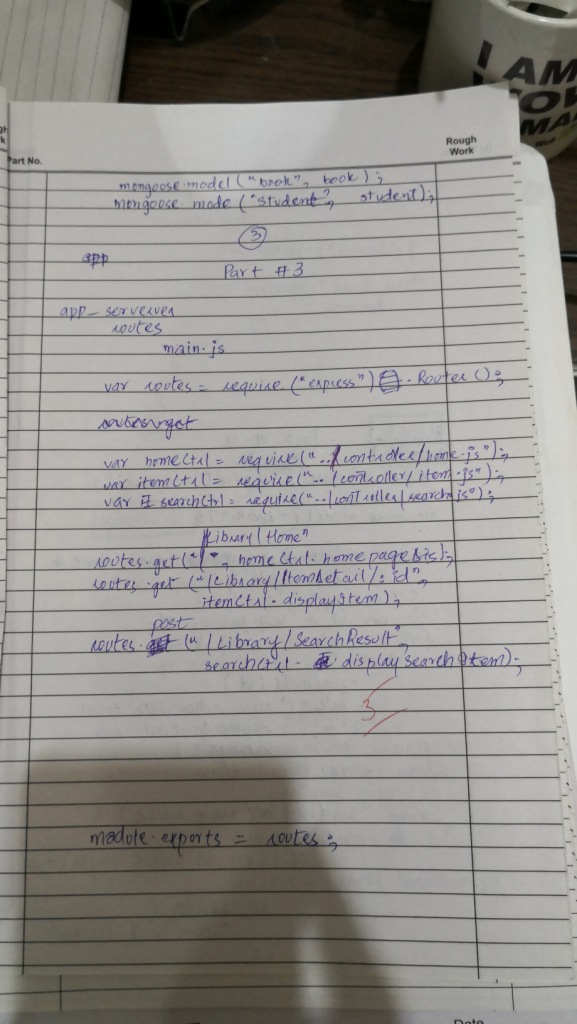 I AM
Rough
Work
Part No.
mongoose.model ("book", book);
mongoose.mode ("student", student);
3
app
Part #3
app-serverver
routes
main.js
var routes = require ("express") . Router ();
routes.get
var homeCtrl = require ("../controller/home.js");
var itemCtrl = require ("../controller/item.js");
var searchCtrl = require ("../controller/search.js");
/Library/Home"
routes.get ("/", homeCtrl.homepage
routes.get ("/Library/ItemDetail/:id",
itemCtrl.displayItem);
post
routes. ("/Library/SearchResult",
searchCtrl. displaySearchItem);
3
module.exports = routes;
Date